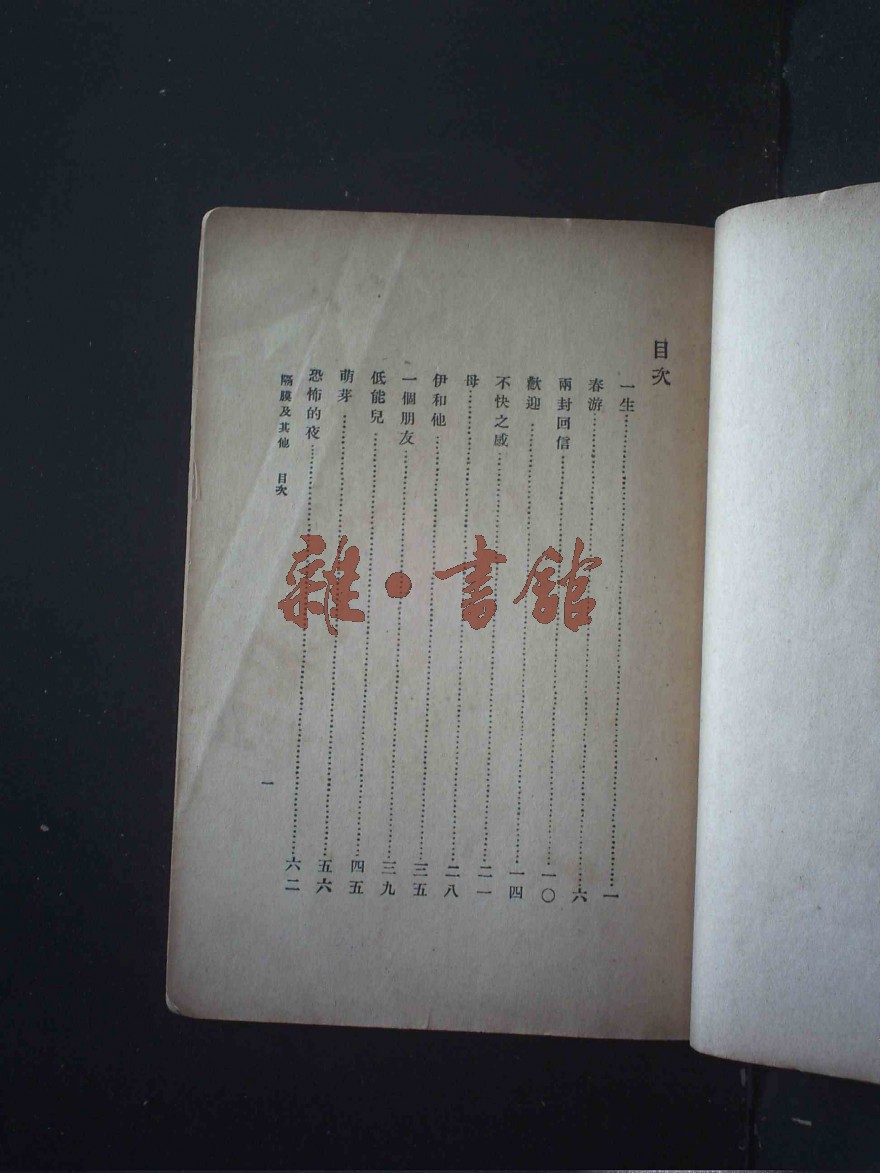 目次
一生……一
春游……六
兩封回信……一〇
歡迎……一四
不快之感……二一
母……二八
伊和他……三五
一個朋友……三九
低能兒……四五
萌芽……五六
恐怖的夜……六二
隔膜及其他　目次
一
雜·書館